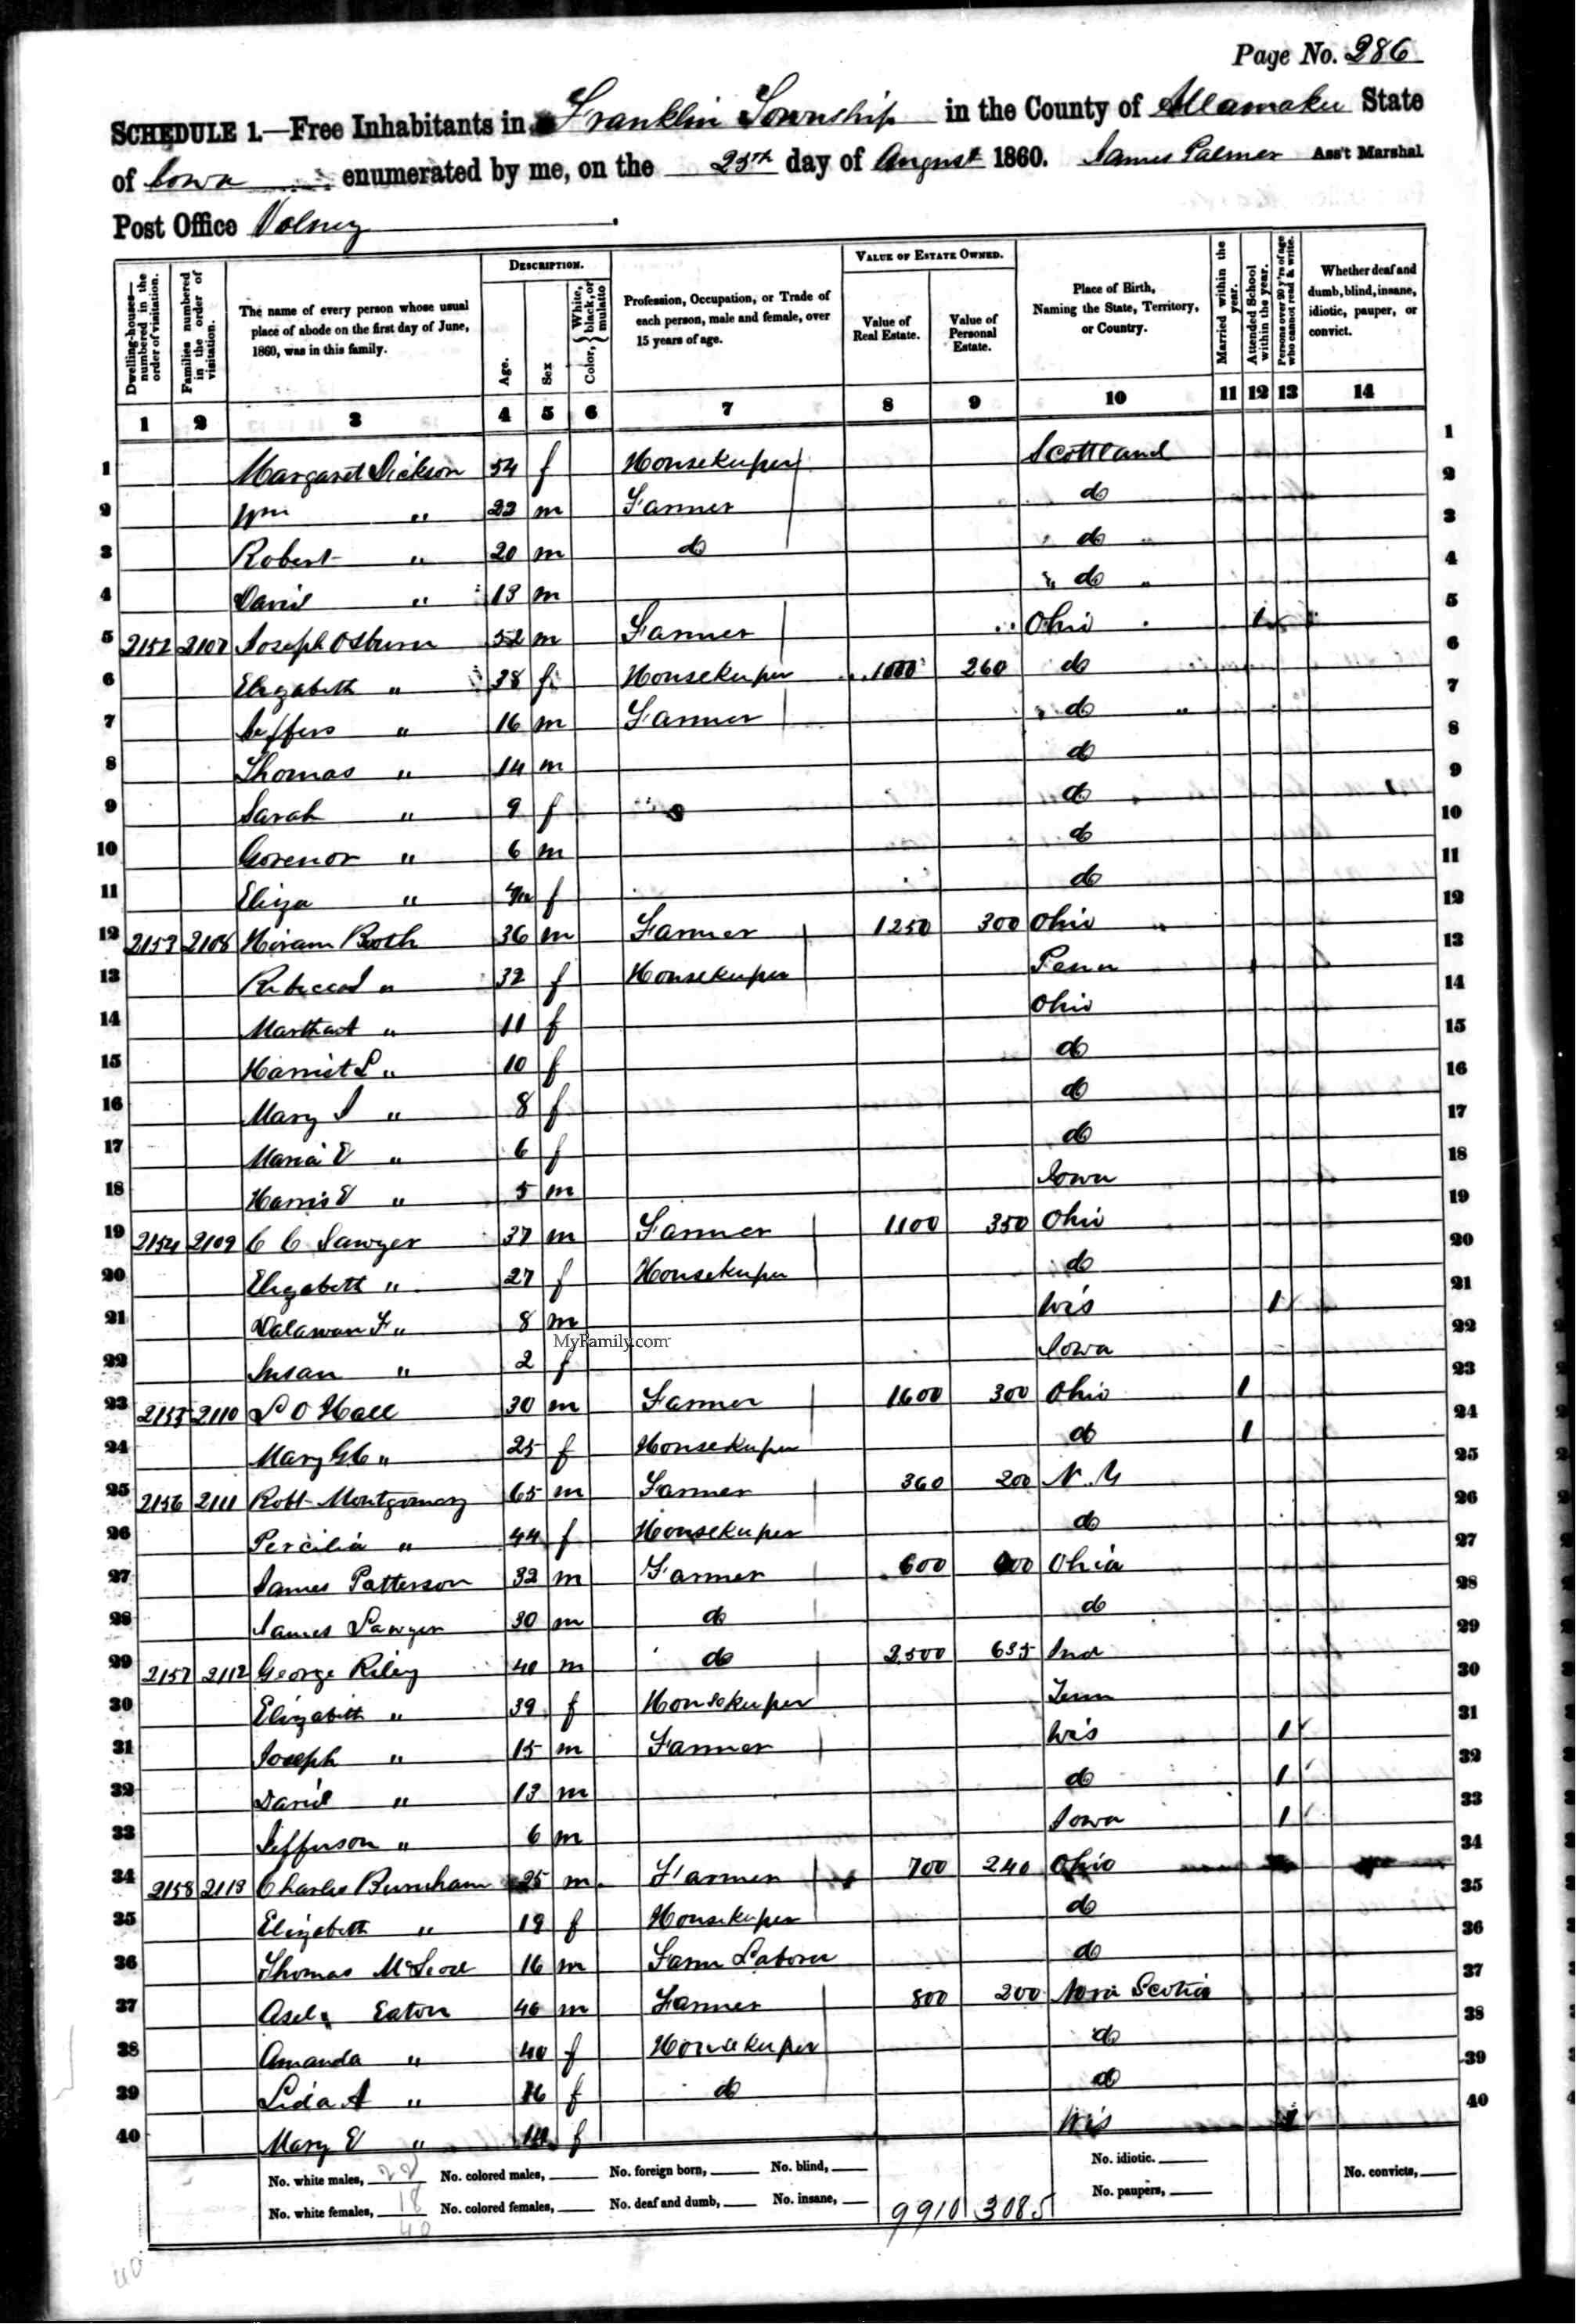 Page No. 286
SCHEDULE 1.—Free Inhabitants in Franklin Township in the County of Allamaku State
of Iowa enumerated by me, on the 25th day of August 1860. James Palmer Ass't Marshal
Post Office Volney
Dwelling-houses—numbered in the order of visitation.
Families numbered in the order of visitation.
The name of every person whose usual place of abode on the first day of June, 1860, was in this family.
DESCRIPTION.
Age.
Sex
Color, White, black, or mulatto
Profession, Occupation, or Trade of each person, male and female, over 15 years of age.
VALUE OF ESTATE OWNED.
Value of Real Estate.
Value of Personal Estate.
Place of Birth, Naming the State, Territory, or Country.
Married within the year.
Attended School within the year.
Persons over 20 y'rs of age who cannot read & write.
Whether deaf and dumb, blind, insane, idiotic, pauper, or convict.
1 2 3 4 5 6 7 8 9 10 11 12 13 14
1 Margaret Dickson 54 f Housekeeper Scottland 1
2 Wm " 22 m Farmer do 2
3 Robert " 20 m do do 3
4 David " 13 m do 4
5 2152 2107 Joseph Osburn 52 m Farmer Ohio 1 5
6 Elizabeth " 38 f Housekeeper 1000 260 do 6
7 Jeffers " 16 m Farmer do 7
8 Thomas " 14 m do 8
9 Sarah " 9 f do 9
10 Govenor " 6 m do 10
11 Eliza " f do 11
12 2153 2108 Hiram Booth 36 m Farmer 1250 300 Ohio 12
13 Rebecca J " 32 f Housekeeper Penn 13
14 Martha A " 11 f Ohio 14
15 Harriet L " 10 f do 15
16 Mary J " 8 f do 16
17 Maria E " 6 f do 17
18 Harris E " 5 m Iowa 18
19 2154 2109 C C Sawyer 37 m Farmer 1100 350 Ohio 19
20 Elizabeth " 27 f Housekeeper do 20
21 F " 8 m Wis 1 21
MyFamily.com
22 Susan " 2 f Iowa 22
23 2155 2110 L O Hall 30 m Farmer 1600 300 Ohio 1 23
24 Mary " 25 f Housekeeper do 1 24
25 2156 2111 Robt Montgomery 65 m Farmer 360 200 N.Y 25
26 Percilia " 44 f Housekeeper do 26
27 James Patterson 32 m Farmer 600 Ohio 27
28 James Sawyer 30 m do do 28
29 2157 2112 George Riley 40 m do 2500 635 Ind 29
30 Elizabeth " 39 f Housekeeper Tenn 30
31 Joseph " 15 m Farmer Wis 1 31
32 David " 13 m do 1 32
33 Jefferson " 6 m Iowa 1 33
34 2158 2113 Charles Burnham 25 m Farmer 700 240 Ohio 34
35 Elizabeth " 19 f Housekeeper do 35
36 Thomas McLeod 16 m Farm Laborer do 36
37 Asel Eaton 46 m Farmer 800 200 Nova Scotia 37
38 Amanda " 40 f Housekeeper do 38
39 Lida A " 16 f do do 39
40 Mary E " f Wis 1 40
No. white males, 22 No. colored males, No. foreign born, No. blind, No. idiotic. No. convicts,
No. white females, 18 No. colored females, No. deaf and dumb, No. insane, 9910 3085 No. paupers,
40
40